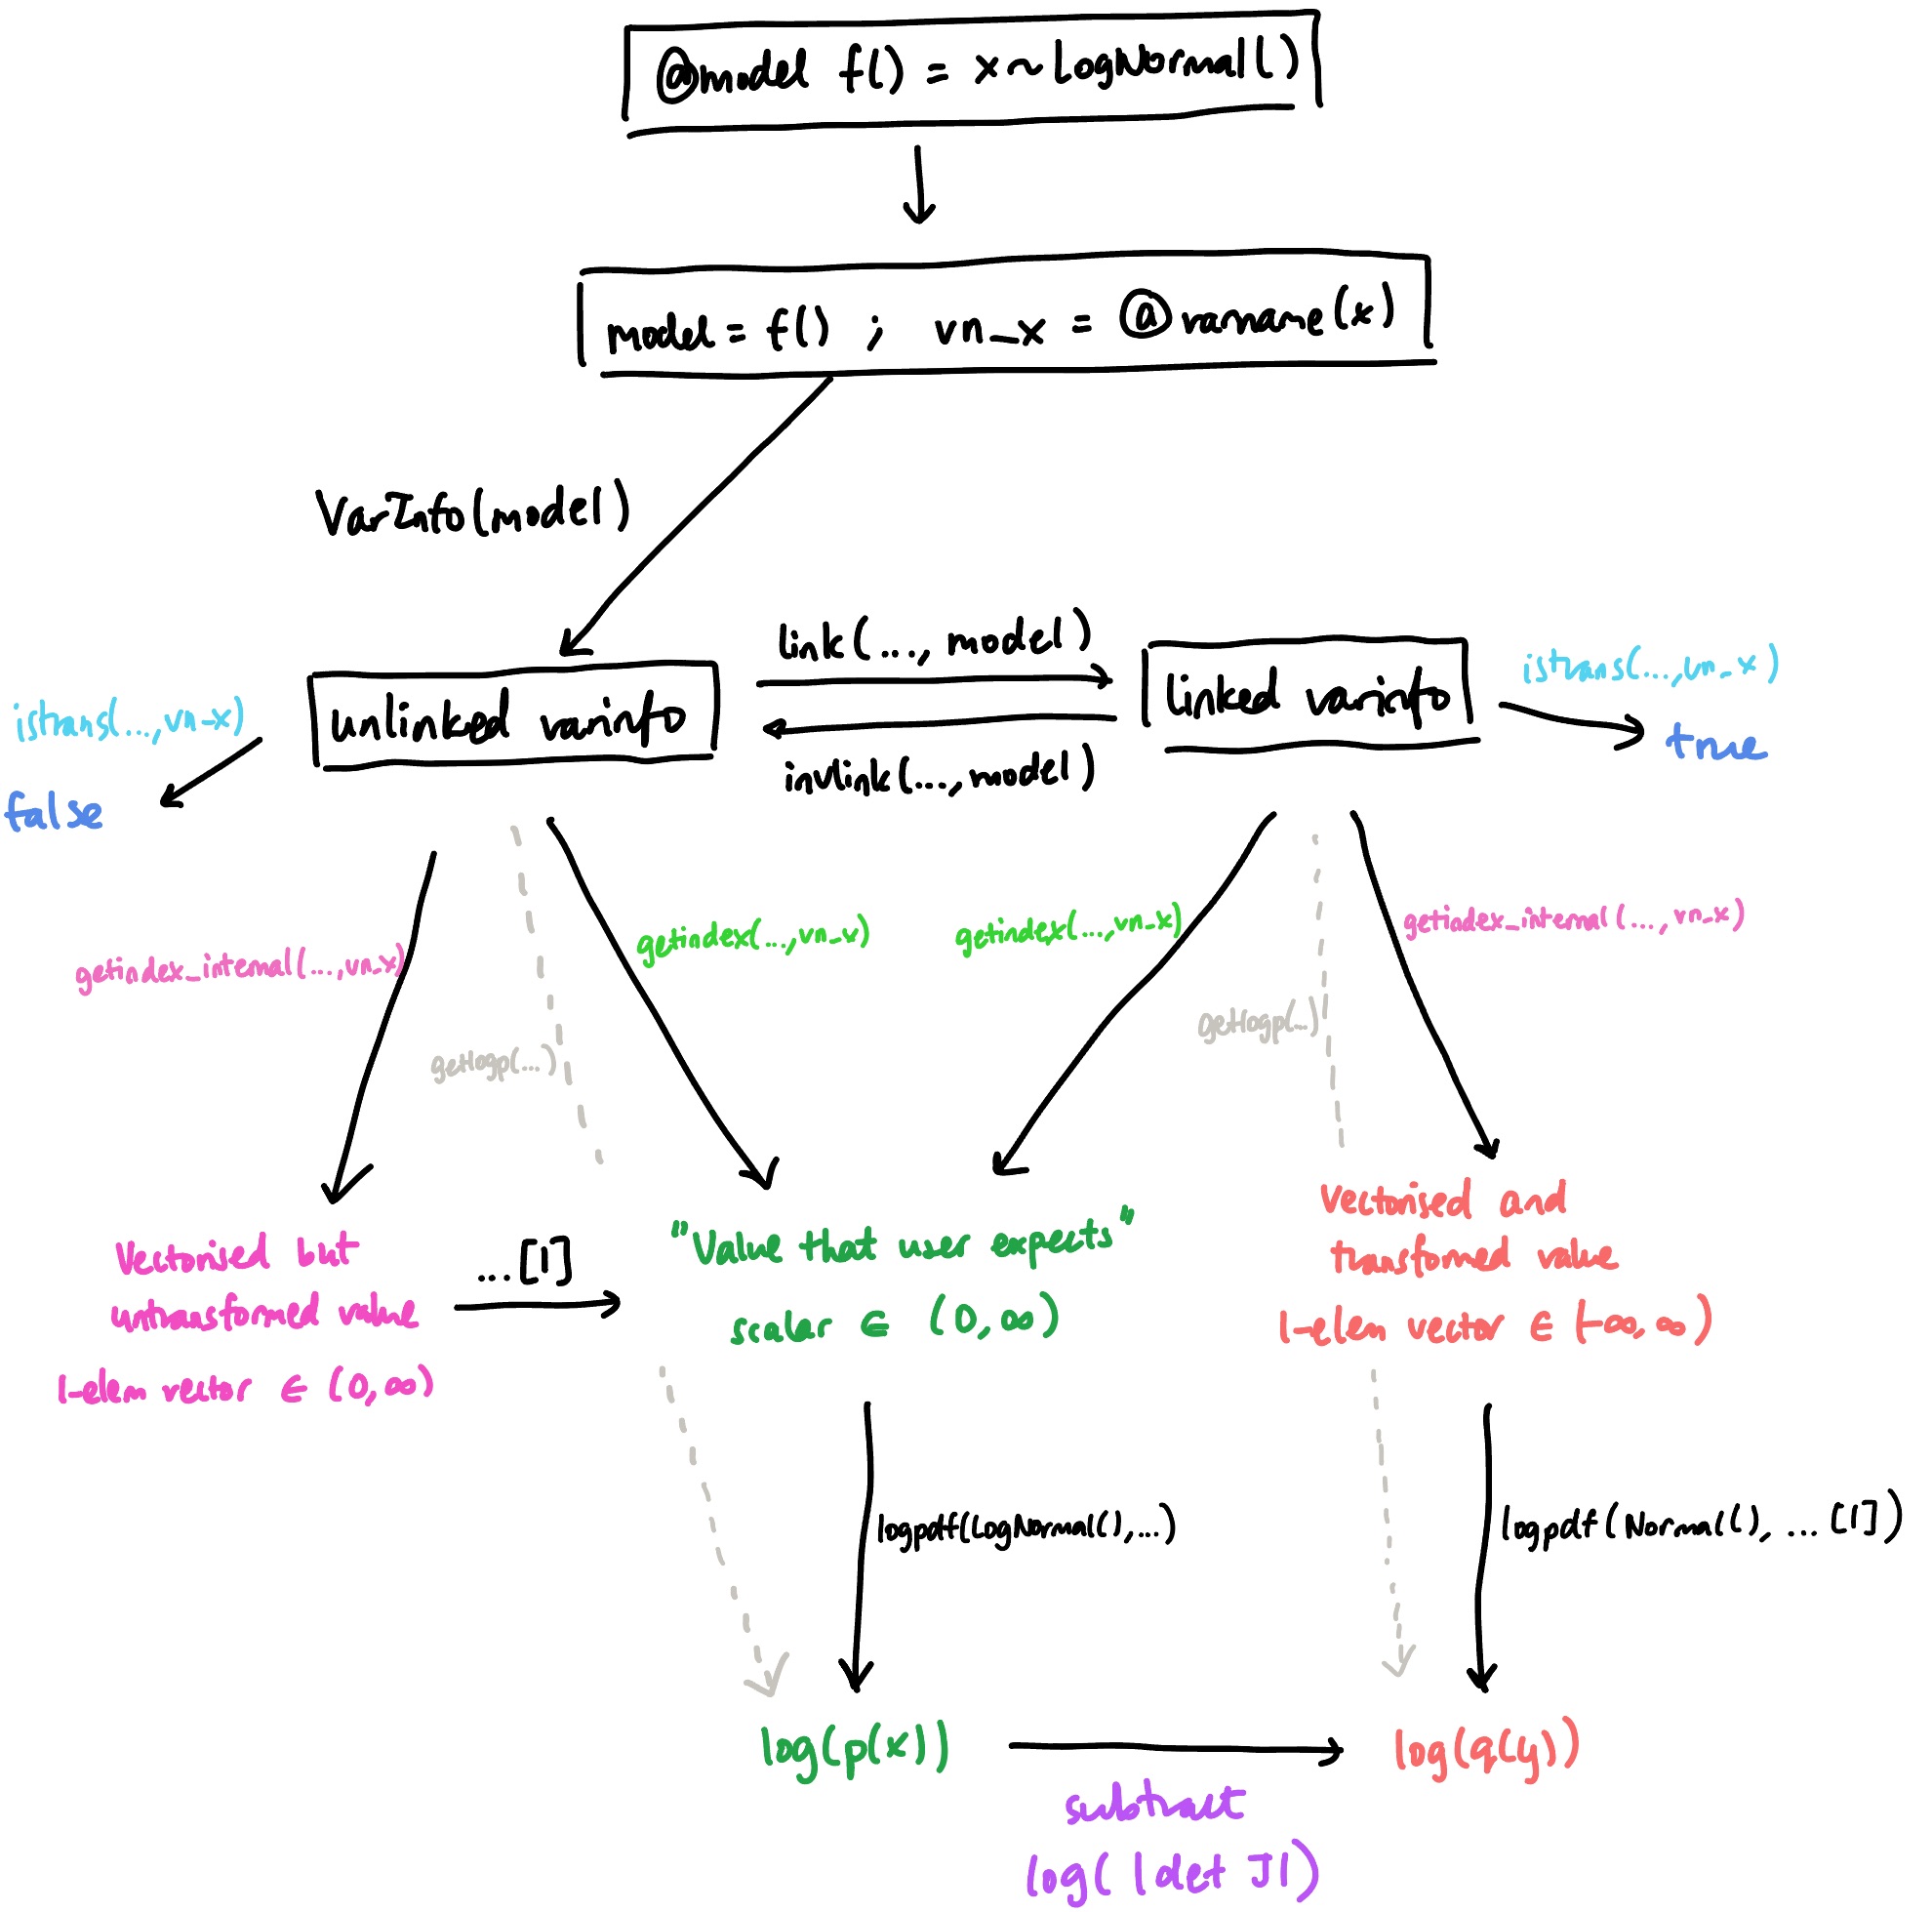 @model f() = x ~ LogNormal()
model = f() ; vn_x = @varname(x)
VarInfo(model)
link(..., model)
istrans(...,vn_x)
linked varinfo
istrans(...,vn_x)
unlinked varinfo
true
invlink(...,model)
false
getindex_internal(...,vn_x)
getindex(...,vn_x)
getindex(...,vn_x)
getindex_internal(...,vn_x)
getlogp(...)
getlogp(...)
Vectorised but
untransformed value
1-elem vector ∈ (0,∞)
...[1]
"Value that user expects"
scalar ∈ (0,∞)
Vectorised and
transformed value
1-elem vector ∈ (-∞,∞)
logpdf(LogNormal(),...)
logpdf(Normal(), ...[1])
log(p(x))
log(q(y))
subtract
log( |det J|)